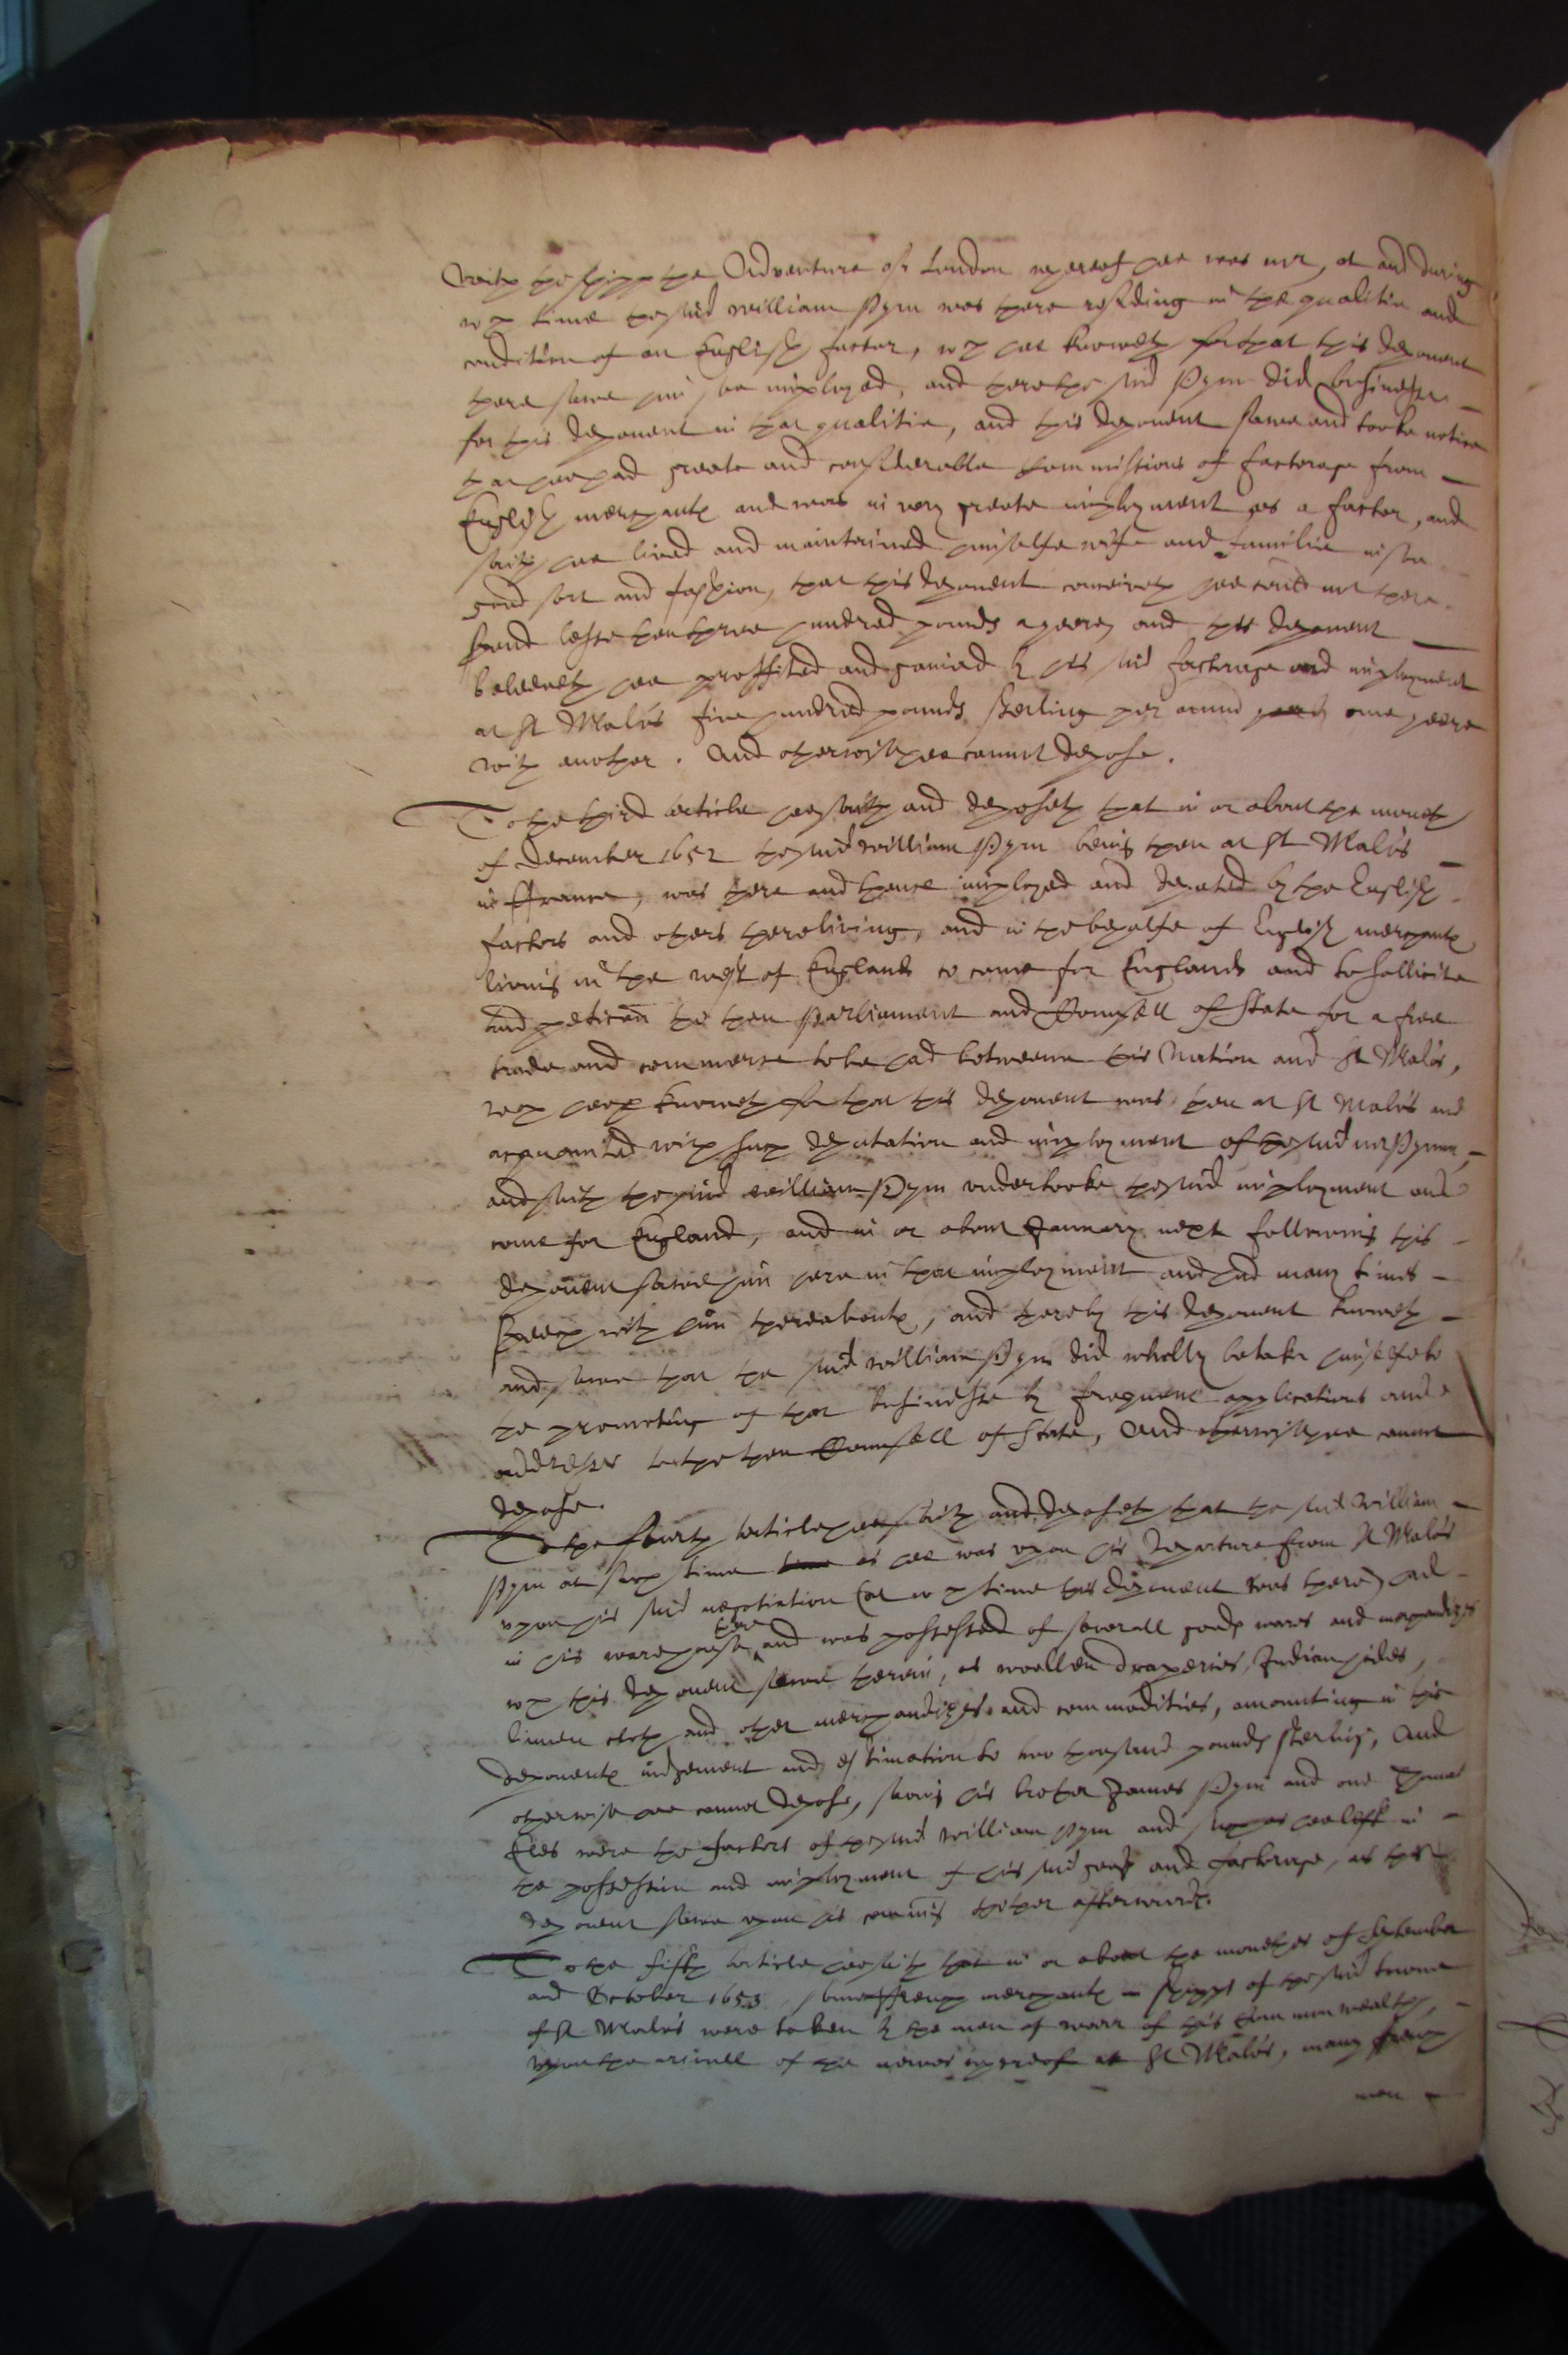 with the shipp the Adventure of London whereof hee was mr, at and during
wch time the said William Pym was there residing in the qualitie and
condition of an English factor, wch hee knoweth for that this deponent
there sawe him soe imployed, and there the said Pym did businesse
for this deponent in that qualitie, and this deponent sawe and tooke notice
that hee had greate and considerable Commissions of factorage from
English merchants and was in very greate imployment as a factor, and
saith hee lived and maintained himselfe wife and familie in soe
good sort and fashion, that this deponent conceiveth hee could not there
spend lesse then three hundred pounds a yeere, and this deponent
beleeveth hee proffited and gained by his said factorage and imployment
at St Malo's five hundred pounds sterling per annum one yeere
with another. And otherwise hee cannot depose.
To the third article hee saith and deposeth that in or about the moneth
of December 1652 the said William Pym being then at St Malo's
in Ffrance, was there and thence imployed and deputed by the English
factors and others there living, and in the behalfe of English merchants
living in the west of England to come for England and to sollicite
and petition the then Parliament and Counsell of State for a free
trade and commerce to be had betweene this Nation and St Malo's,
wch hee knoweth for that this deponent was then at St Malo's and
acquainted with such deputation and imployment of the said mr Pymm,
and saith the said William Pym undertooke the said imployment and
come for England, and in or about January next following this
deponent sawe him here in that imployment and had many times
speech with him thereabouts, and thereby this deponent knoweth
and sawe that the said William Pym did wholly betake himselfe to
the promoting of that businesse by frequent applications and
addresses to the then Counsell of State, And otherwise hee cannot
depose.
To the fourth article hee saith and deposeth that the said William
Pym at such time as hee was upon his departure from St Malo's
upon his said negotiation (at wch time this deponent was there) had
in his warehouse there and was possessed of severall goods wares and merchandizes
wch this deponent sawe therein, as woollen draperies, Indian hides,
linnen cloth and other merchandizes and commodities, amounting in this
deponents judgement and estimation to two thousand pounds sterling, And
otherwise hee cannot depose, saving his brother James Pym and one Thomas
Eles were the factors of the said William Pym and hee left in
the possession and imployment of his said goods and factorage, as this
deponent sawe upon his comming thither afterwards.
To the fifth article hee saith that in or about the monethes of September
and October 1653 some Ffrench merchants shipps of the said towne
of St Malo's were taken by the men of warr of this Common wealth,
upon the arivall of the newes whereof at St Malo's, many French
men